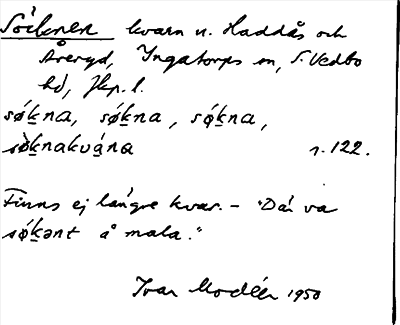 Söknen kvarn n. Haddås och
Åseryd, Ingatorps sn, S. Vedbo
hd, Jkp. l.
sǿk̲na, sǿk̲na, sǿ̨k̲na,
sø̀k̲nakvá̱na s. 122.
Finns ej längre kvar. – "Där va
sǿk̲ənt å mala."
Ivar Modéer 1950